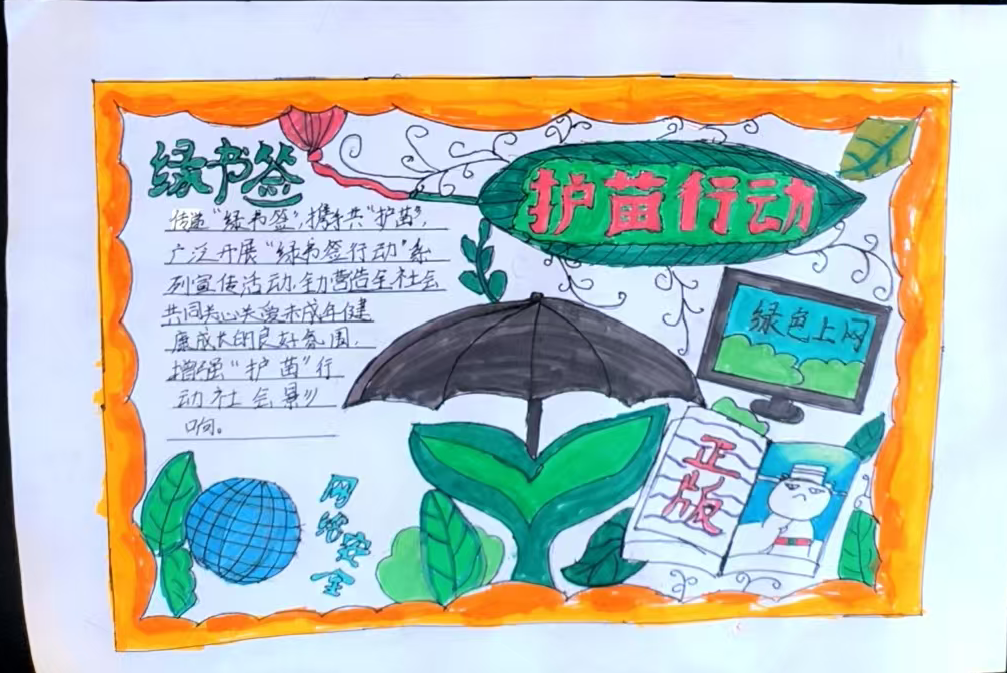 绿书签
护苗行动
传递“绿书签”,携手共“护苗”,
广泛开展“绿书签行动”系
列宣传活动,全力营造全社会
共同关心关爱未成年健
康成长的良好氛围,
增强“护苗”行
动社会影
响。
绿色上网
正版
网络安全